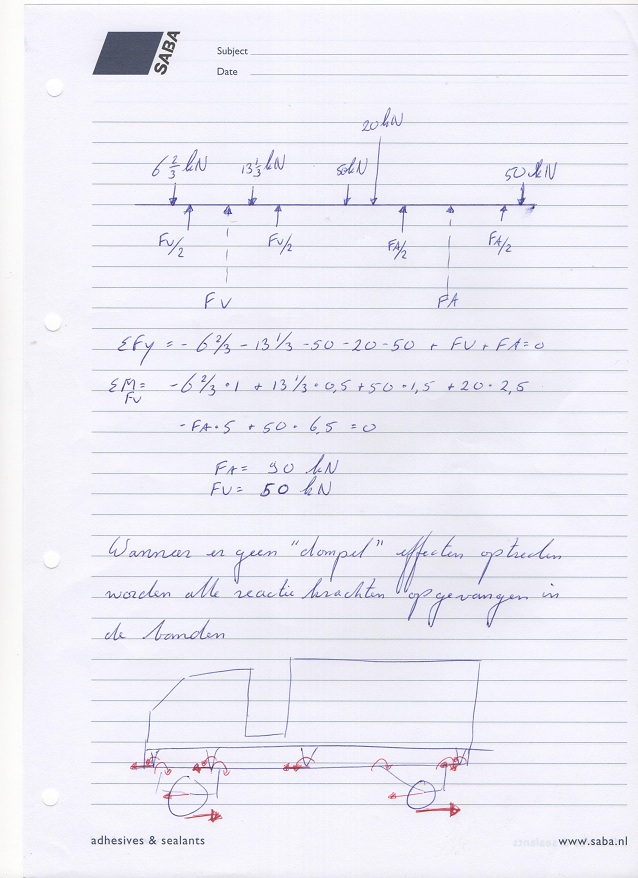 SABA
Subject
Date
20 kN
6 2/3 kN 13 1/3 kN 50kN 50 kN
FV/2 FV/2 FA/2 FA/2
FV FA
ΣFy = - 6 2/3 - 13 1/3 - 50 - 20 - 50 + FV + FA = 0
ΣM = - 6 2/3 · 1 + 13 1/3 · 0,5 + 50 · 1,5 + 20 · 2,5
FV
- FA · 5 + 50 · 6,5 = 0
FA = 90 kN
FV = 50 kN
Wanneer er geen "dompel" effecten optreden
worden alle reactie krachten opgevangen in
de banden
adhesives & sealants www.saba.nl